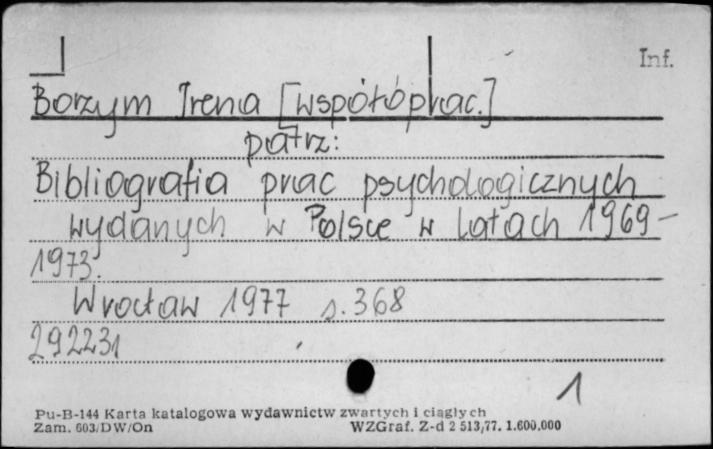 Inf.
Borzym Irena [współóprac.]
patrz:
Bibliografia prac psychologicznych
wydanych w Polsce w latach 1969-
1973.
Wrocław 1977 s. 368
292231
1
Pu-B-144 Karta katalogowa wydawnictw zwartych i ciągłych
Zam. 603/DW/On WZGraf. Z-d 2 513/77. 1.600.000